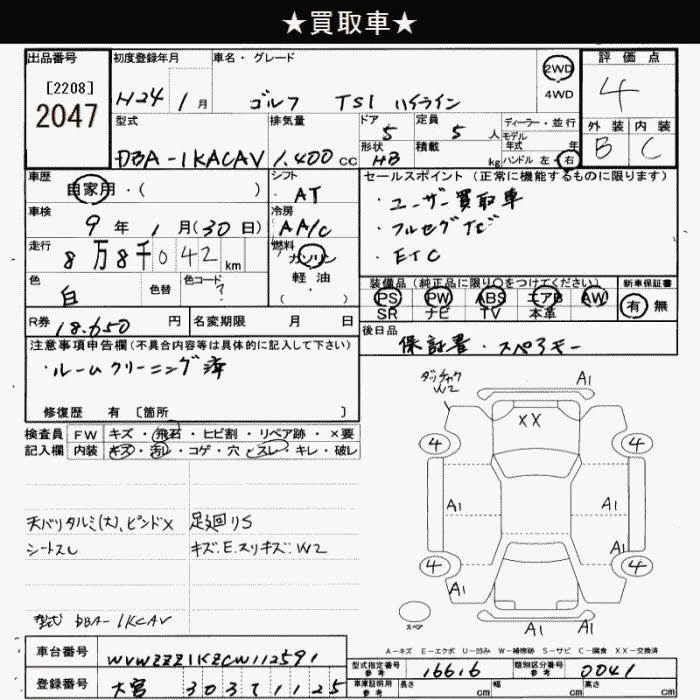 ★買取車★
出品番号 初度登録年月 車名・グレード 2WD 評価点
[2208]
2047 H24 1月 ゴルフ TSI ハイライン 4WD 4
型式 排気量 ドア 定員 ディーラー・並行 外装 内装
5 5人 モデル年式 年
DBA-1KACAV 1.400cc 形状 HB 積載 kg ハンドル 左・右 B C
車歴 自家用・( ) シフト AT セールスポイント(正常に機能するものに限ります)
・ユーザー買取車
車検 9年 1月(30日) 冷房 AA/C ・フルセグナビ
走行 8万8千042km 燃料 ガソリン ・ETC
色 白 色替 色コード ? 軽油 ・( ) 装備品(純正品に限り○をつけてください) 新車保証書
PS PW ABS エアB AW 有・無
R券 18.650円 名変期限 月 日 SR ナビ TV 本革
注意事項申告欄(不具合内容等は具体的に記入して下さい) 後日品
・ルームクリーニング済 保証書・スペアキー
修復歴 有 〔箇所 〕
検査員 FW キズ・飛石・ヒビ割・リペア跡・×要
記入欄 内装 キズ・汚レ・コゲ・穴・スレ・キレ・破レ
天バリタルミ(大)、ピンドX 足廻りS
シートスレ キズ.E.スリキズ:W2
型式 DBA-1KCAV
W2 A1
XX
4 4
A1 A1
A1
4 4
A1 A1
スペア
A-キズ E-エクボ U-凹み W-補修跡 S-サビ C-腐食 XX-交換済
車台番号 WVWZZZ1KZCW112591 型式指定番号 参考 16616 類別区分番号 参考 0041
登録番号 大宮 303て1125 車庫証明用 参考 長さ cm 幅 cm 高さ cm